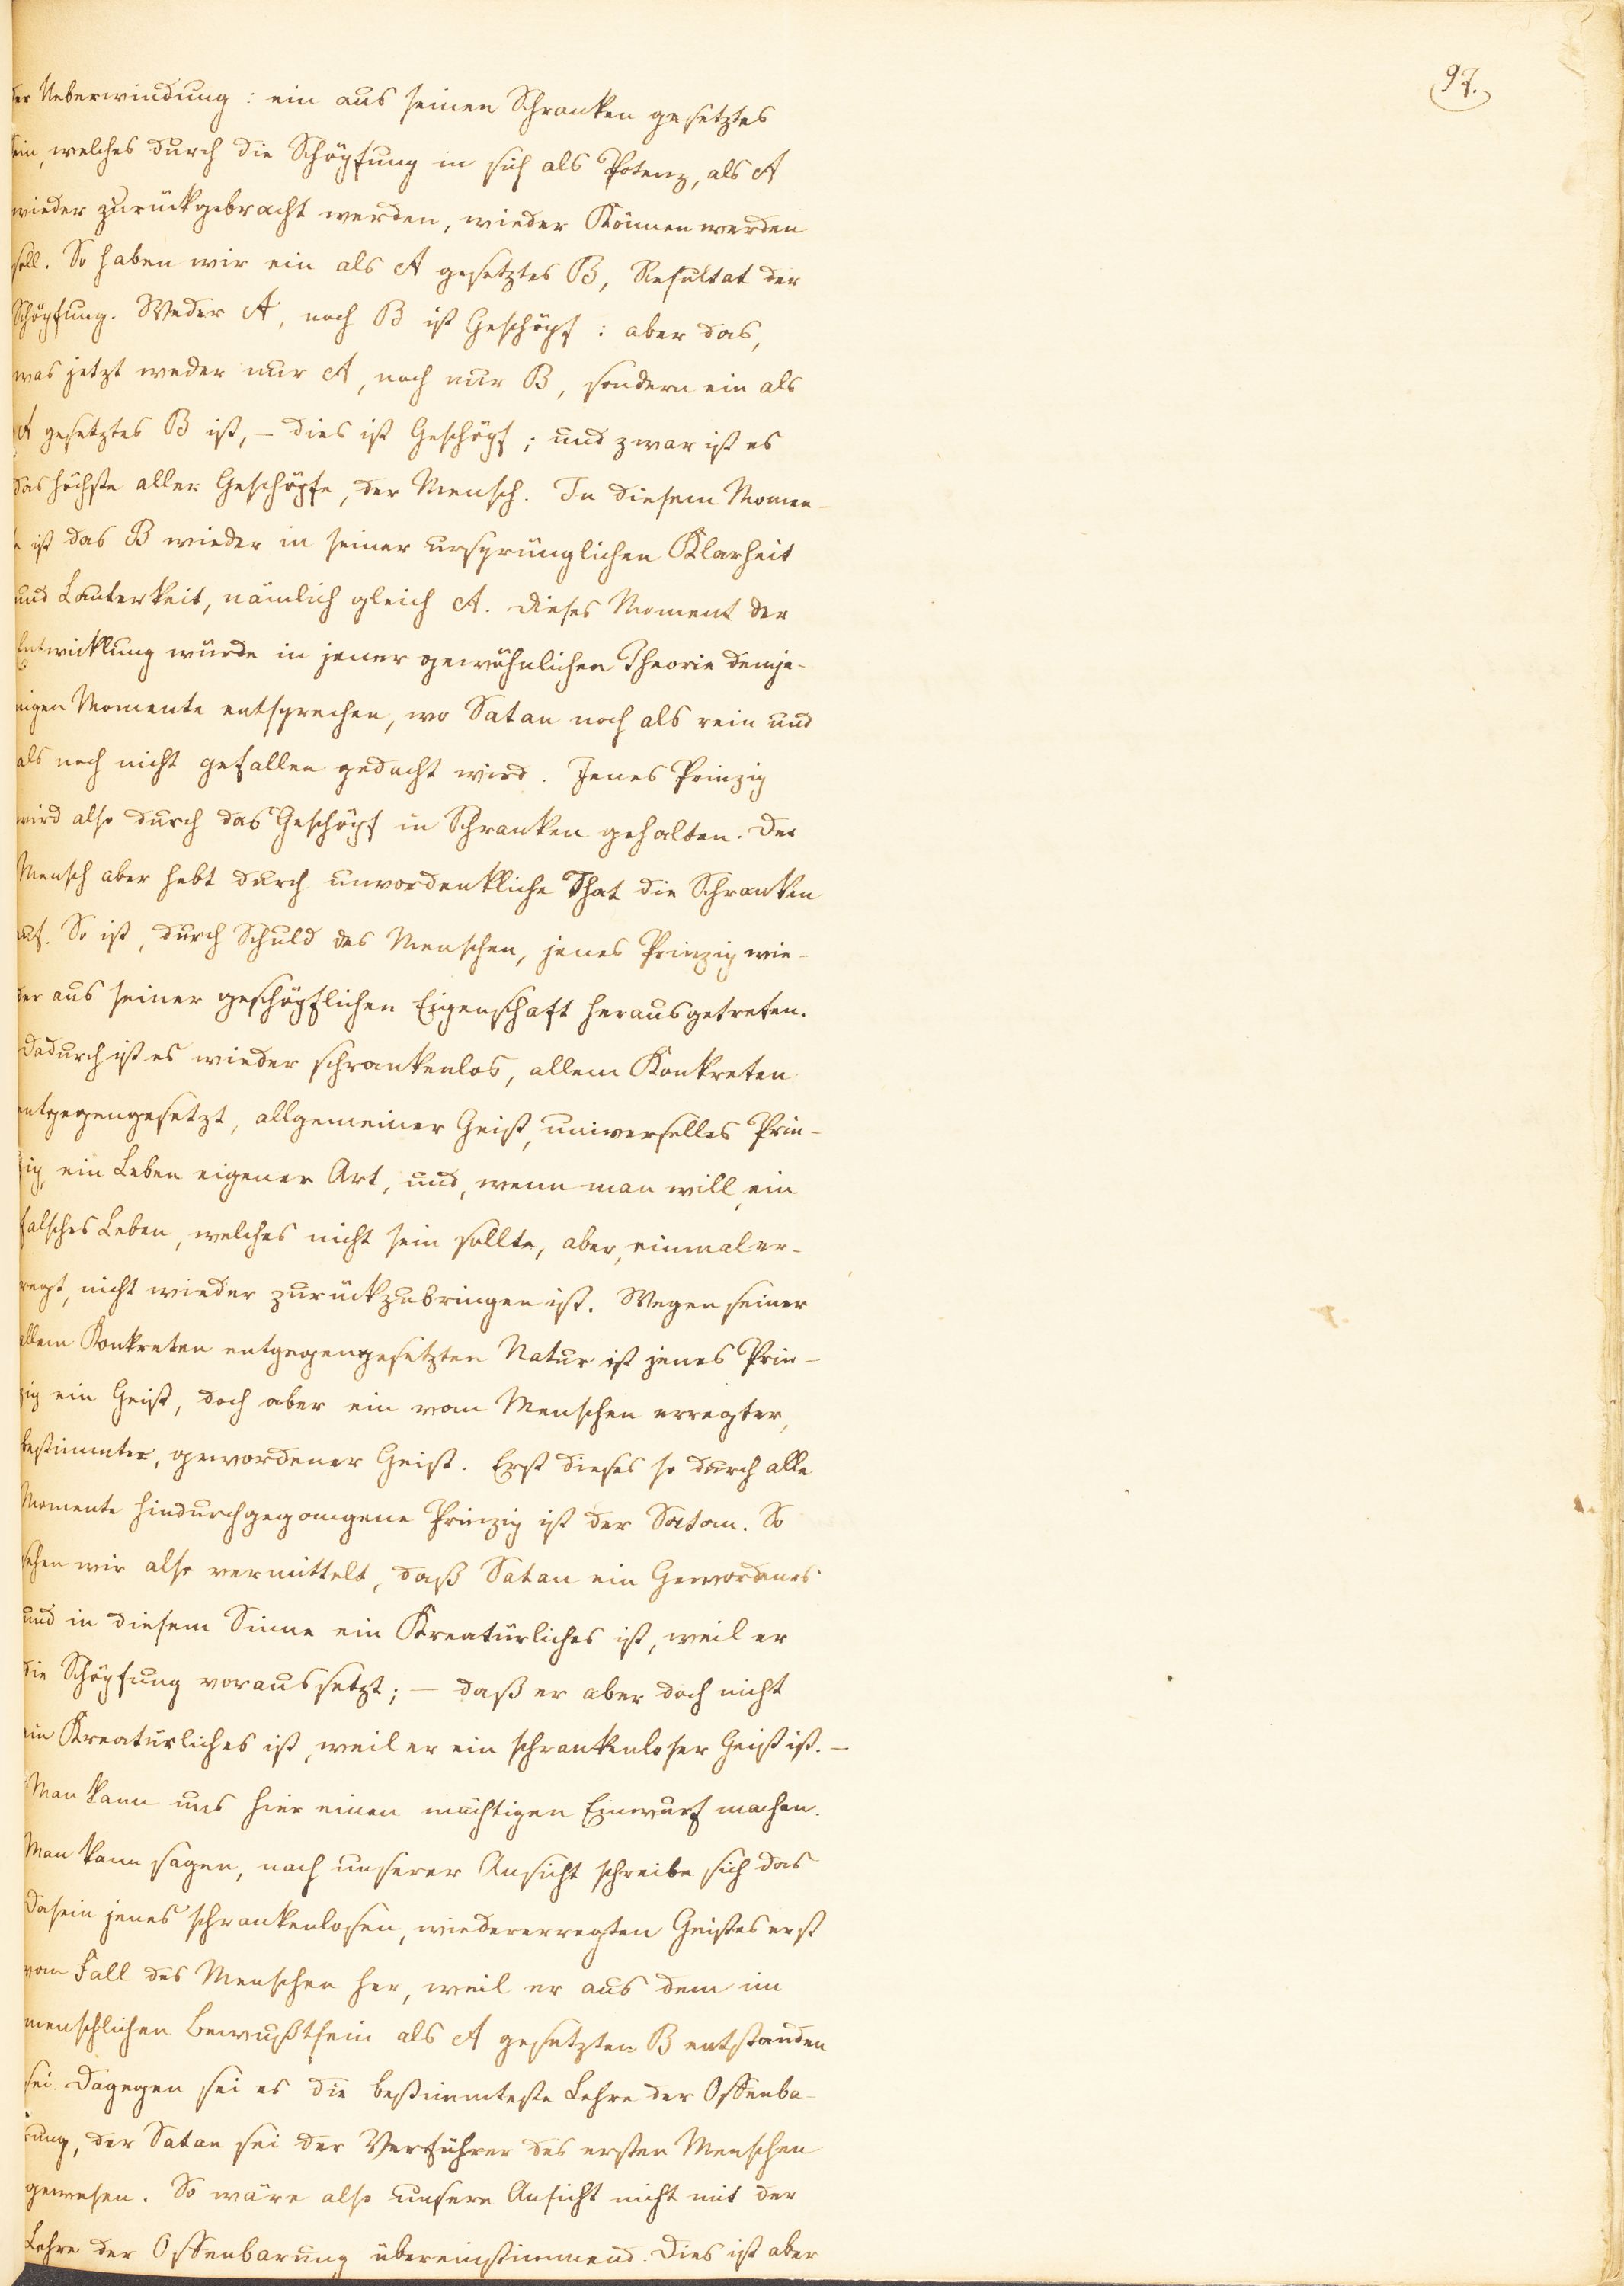 97.
der Ueberwindung: ein aus seinen Schranken gesetztes
sein, welches durch die Schöpfung in sich als Potenz, als A
wieder zurückgebracht werden, wieder Können werden
soll. So haben wir ein als A gesetztes B, Resultat der
Schöpfung. Weder A, noch B ist Geschöpf: aber das,
was jetzt weder nur A, noch nur B, sondern ein als
A gesetztes B ist, – dies ist Geschöpf; und zwar ist es
das höchste aller Geschöpfe, der Mensch. In diesem Momen-
te ist das B wieder in seiner ursprünglichen Klarheit
und Lauterkeit, nämlich gleich A. Dieses Moment der
Entwicklung würde in jener gewöhnlichen Theorie demje-
nigen Momente entsprechen, wo Satan noch als rein und
als noch nicht gefallen gedacht wird. Jenes Prinzip
wird also durch das Geschöpf in Schranken gehalten. Der
Mensch aber hebt durch unvordenkliche That die Schranken
auf. So ist, durch Schuld des Menschen, jenes Prinzip wie-
der aus seiner geschöpflichen Eigenschaft herausgetreten.
Dadurch ist es wieder schrankenlos, allem Konkreten
entgegengesetzt, allgemeiner Geist, universelles Prin-
zip, ein Leben eigener Art, und, wenn man will, ein
falsches Leben, welches nicht sein sollte, aber, einmal er-
regt, nicht wieder zurückzubringen ist. Wegen seiner
allem Konkreten entgegengesetzten Natur ist jenes Prin-
zip ein Geist, doch aber ein vom Menschen erregter,
bestimmter, gewordener Geist. Erst dieses so durch alle
Momente hindurchgegangene Prinzip ist der Satan. So
sehen wir also vermittelt, daß Satan ein Gewordenes
und in diesem Sinne ein Kreatürliches ist, weil er
die Schöpfung voraussetzt; – daß er aber doch nicht
ein Kreatürliches ist, weil er ein schrankenloser Geist ist. –
Man kann uns hier einen mächtigen Einwurf machen.
Man kann sagen, nach unserer Ansicht schreibe sich das
Dasein jenes schrankenlosen, wiedererregten Geistes erst
vom Fall des Menschen her, weil er aus dem im
menschlichen Bewußtsein als A gesetzten B entstanden
sei. Dagegen sei es die bestimmteste Lehre der Offenba-
rung, der Satan sei der Verführer des ersten Menschen
gewesen. So wäre also unsere Ansicht nicht mit der
Lehre der Offenbarung übereinstimmend. Dies ist aber